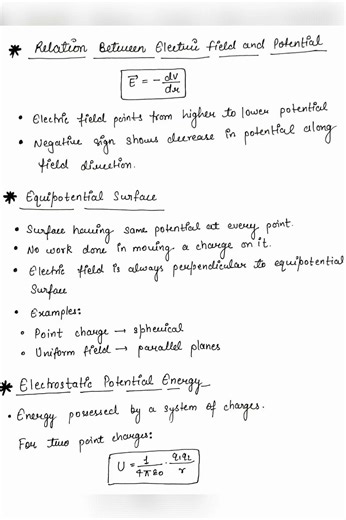 * Relation Between Electric field and Potential
E⃗ = - dV/dr
• Electric field points from higher to lower potential
• Negative sign shows decrease in potential along
field direction.
* Equipotential Surface
• Surface having same potential at every point.
• No work done in moving a charge on it.
• Electric field is always perpendicular to equipotential
Surface
• Examples:
◦ Point charge → spherical
◦ Uniform field → parallel planes
* Electrostatic Potential Energy
• Energy possessed by a system of charges.
For two point charges:
U = 1/4πε0 · q1q2/r